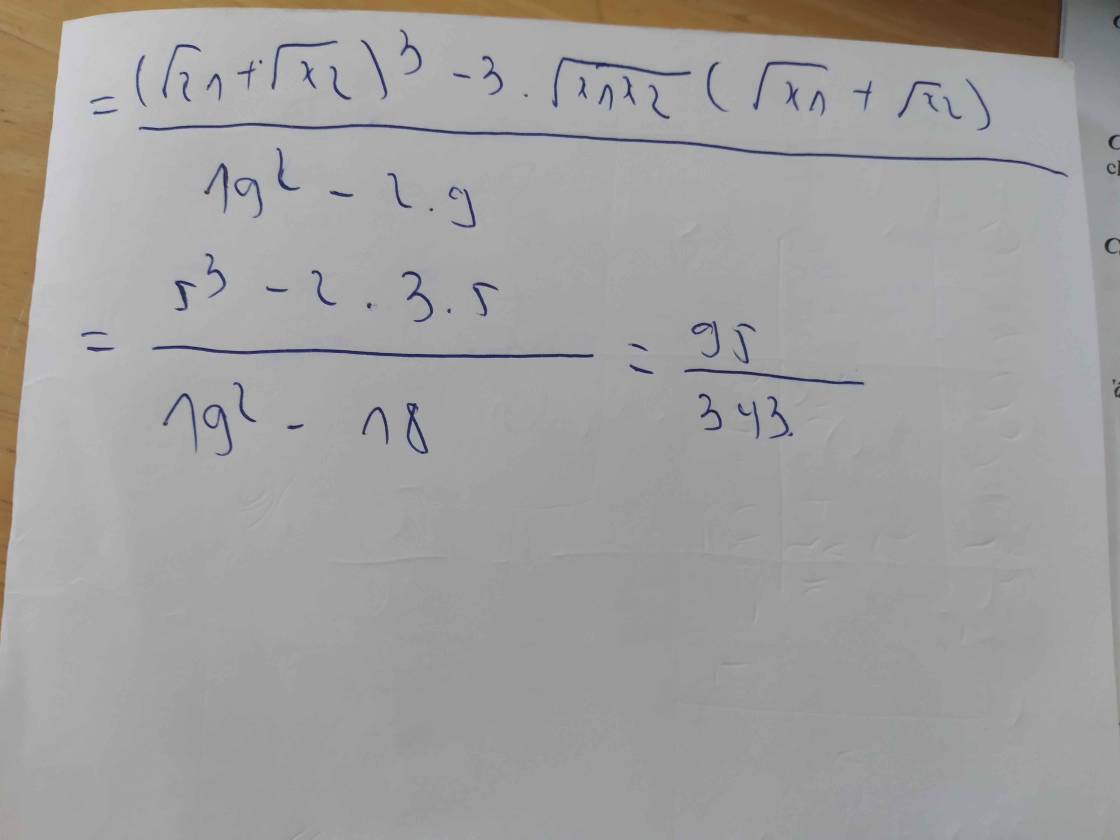 = ((√x1 + √x2)^3 - 3 . √x1x2 (√x1 + √x2)) / (19^2 - 2 . 9)
= (5^3 - 2 . 3 . 5) / (19^2 - 18) = 95 / 343.